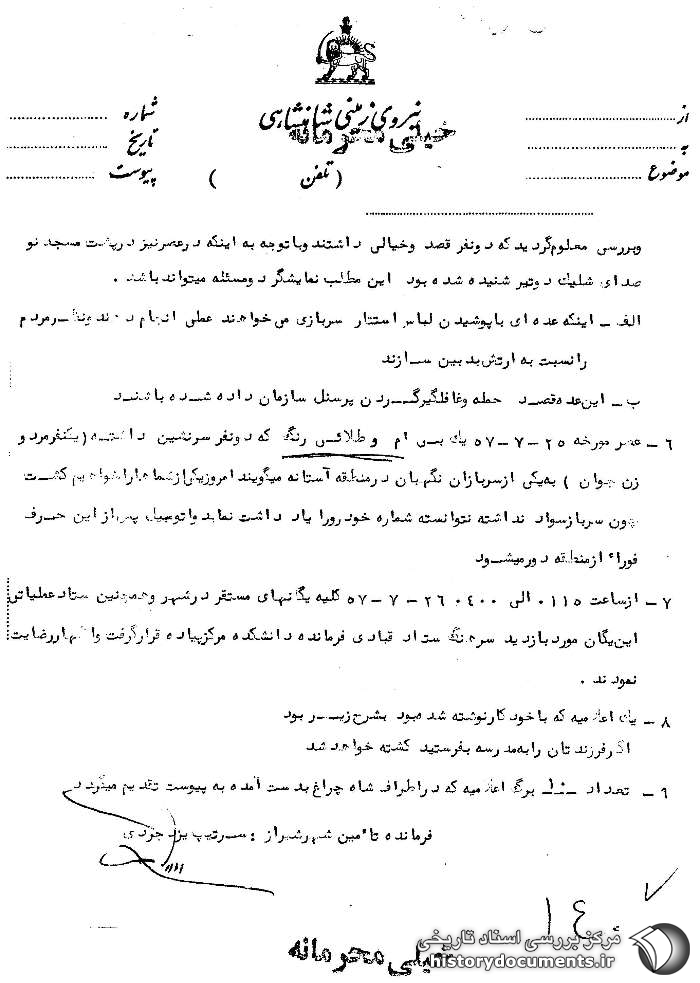 نیروی زمینی شاهنشاهی
خیلی محرمانه
از
به
موضوع
( تلفن )
شماره
تاریخ
پیوست
وبررسی معلوم گردید که دونفر قصد وخیالی داشتند وباتوجه به اینکه درعصرنیز درپشت مسجد نو
صدای شلیک دوتیر شنیده شده بود این مطلب نمایشگر دومسئله میتواند باشد .
الف ـ اینکه عده ای باپوشیدن لباس استتار سربازی می خواهند عملی انجام دهند ونظر مردم
رانسبت به ارتش بدبین سازند
ب ـ این عده قصد حمله وغافلگیرکردن پرسنل سازمان داده شده باشند
۶ ـ عصر مورخه ۲۵ -۷-۵۷ یک بی ام و طلائی رنگ که دونفر سرنشین داشته (یکنفرمرد و
زن جوان ) به یکی ازسربازان نگهبان درمنطقه آستانه میگویند امروزیکی ازشماها راخواهیم کشت
چون سرباز سواد نداشته نتوانسته شماره خودرورا یاد داشت نماید واتومبیل پس از این حرف
فوراً ازمنطقه دورمیشود
۷ ـ ازساعت ۰۱۱۵ الی ۰۴۰۰ ۲۶ -۷-۵۷ کلیه یگانهای مستقر درشهر وهمچنین ستادعملیاتی
این یگان مورد بازدید سرهنگ ستاد قبادی فرمانده دانشکده مرکزپیاده قرارگرفت واظهاررضایت
نمودند .
۸ ـ یک اعلامیه که باخودکارنوشته شده بود بشرح زیر بود
اگرفرزندتان رابه مدرسه بفرستید کشته خواهد شد
۹ ـ تعداد برگ اعلامیه که دراطراف شاه چراغ بدست آمده به پیوست تقدیم میگردد
فرمانده تامین شهر شیراز : سرتیپ یزدجردی
۱۴
خیلی محرمانه
مرکز بررسی اسناد تاریخی
historydocuments.ir